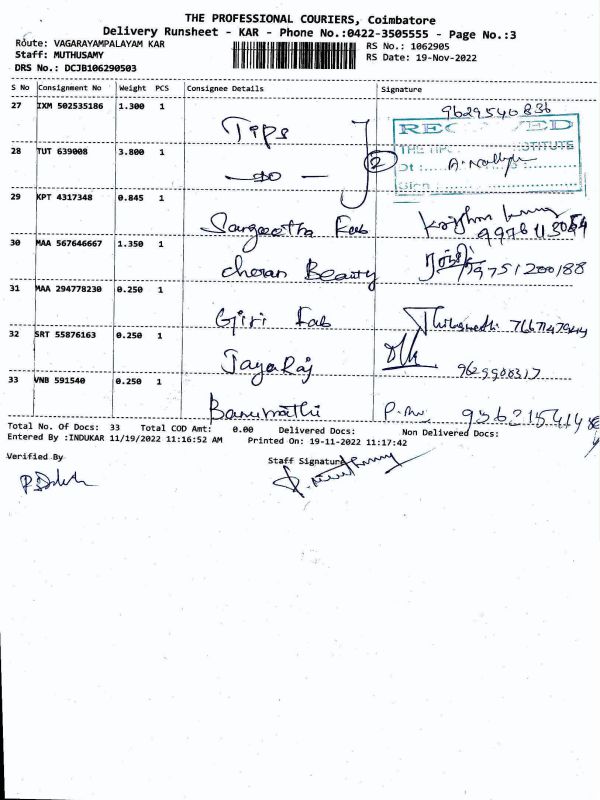 THE PROFESSIONAL COURIERS, Coimbatore
Delivery Runsheet - KAR - Phone No.:0422-3505555 - Page No.:3
Route: VAGARAYAMPALAYAM KAR
RS No.: 1062905
Staff: MUTHUSAMY
RS Date: 19-Nov-2022
DRS No.: DCJB106290503
S No Consignment No Weight PCS Consignee Details Signature
27 IXM 502535186 1.300 1
9629540836
Tips
RECEIVED
28 TUT 639008 3.800 1
— DO —
2
29 KPT 4317348 0.845 1
Sangeetha Fab
30 MAA 567646667 1.350 1
Cheran Beauty
9751200188
31 MAA 294778230 0.250 1
Giri Fab
32 SRT 55876163 0.250 1
Jayaraj
9629908317
33 VNB 591540 0.250 1
Banumathi
Total No. Of Docs: 33 Total COD Amt: 0.00 Delivered Docs: Non Delivered Docs:
Entered By :INDUKAR 11/19/2022 11:16:52 AM Printed On: 19-11-2022 11:17:42
Verified By
Staff Signature